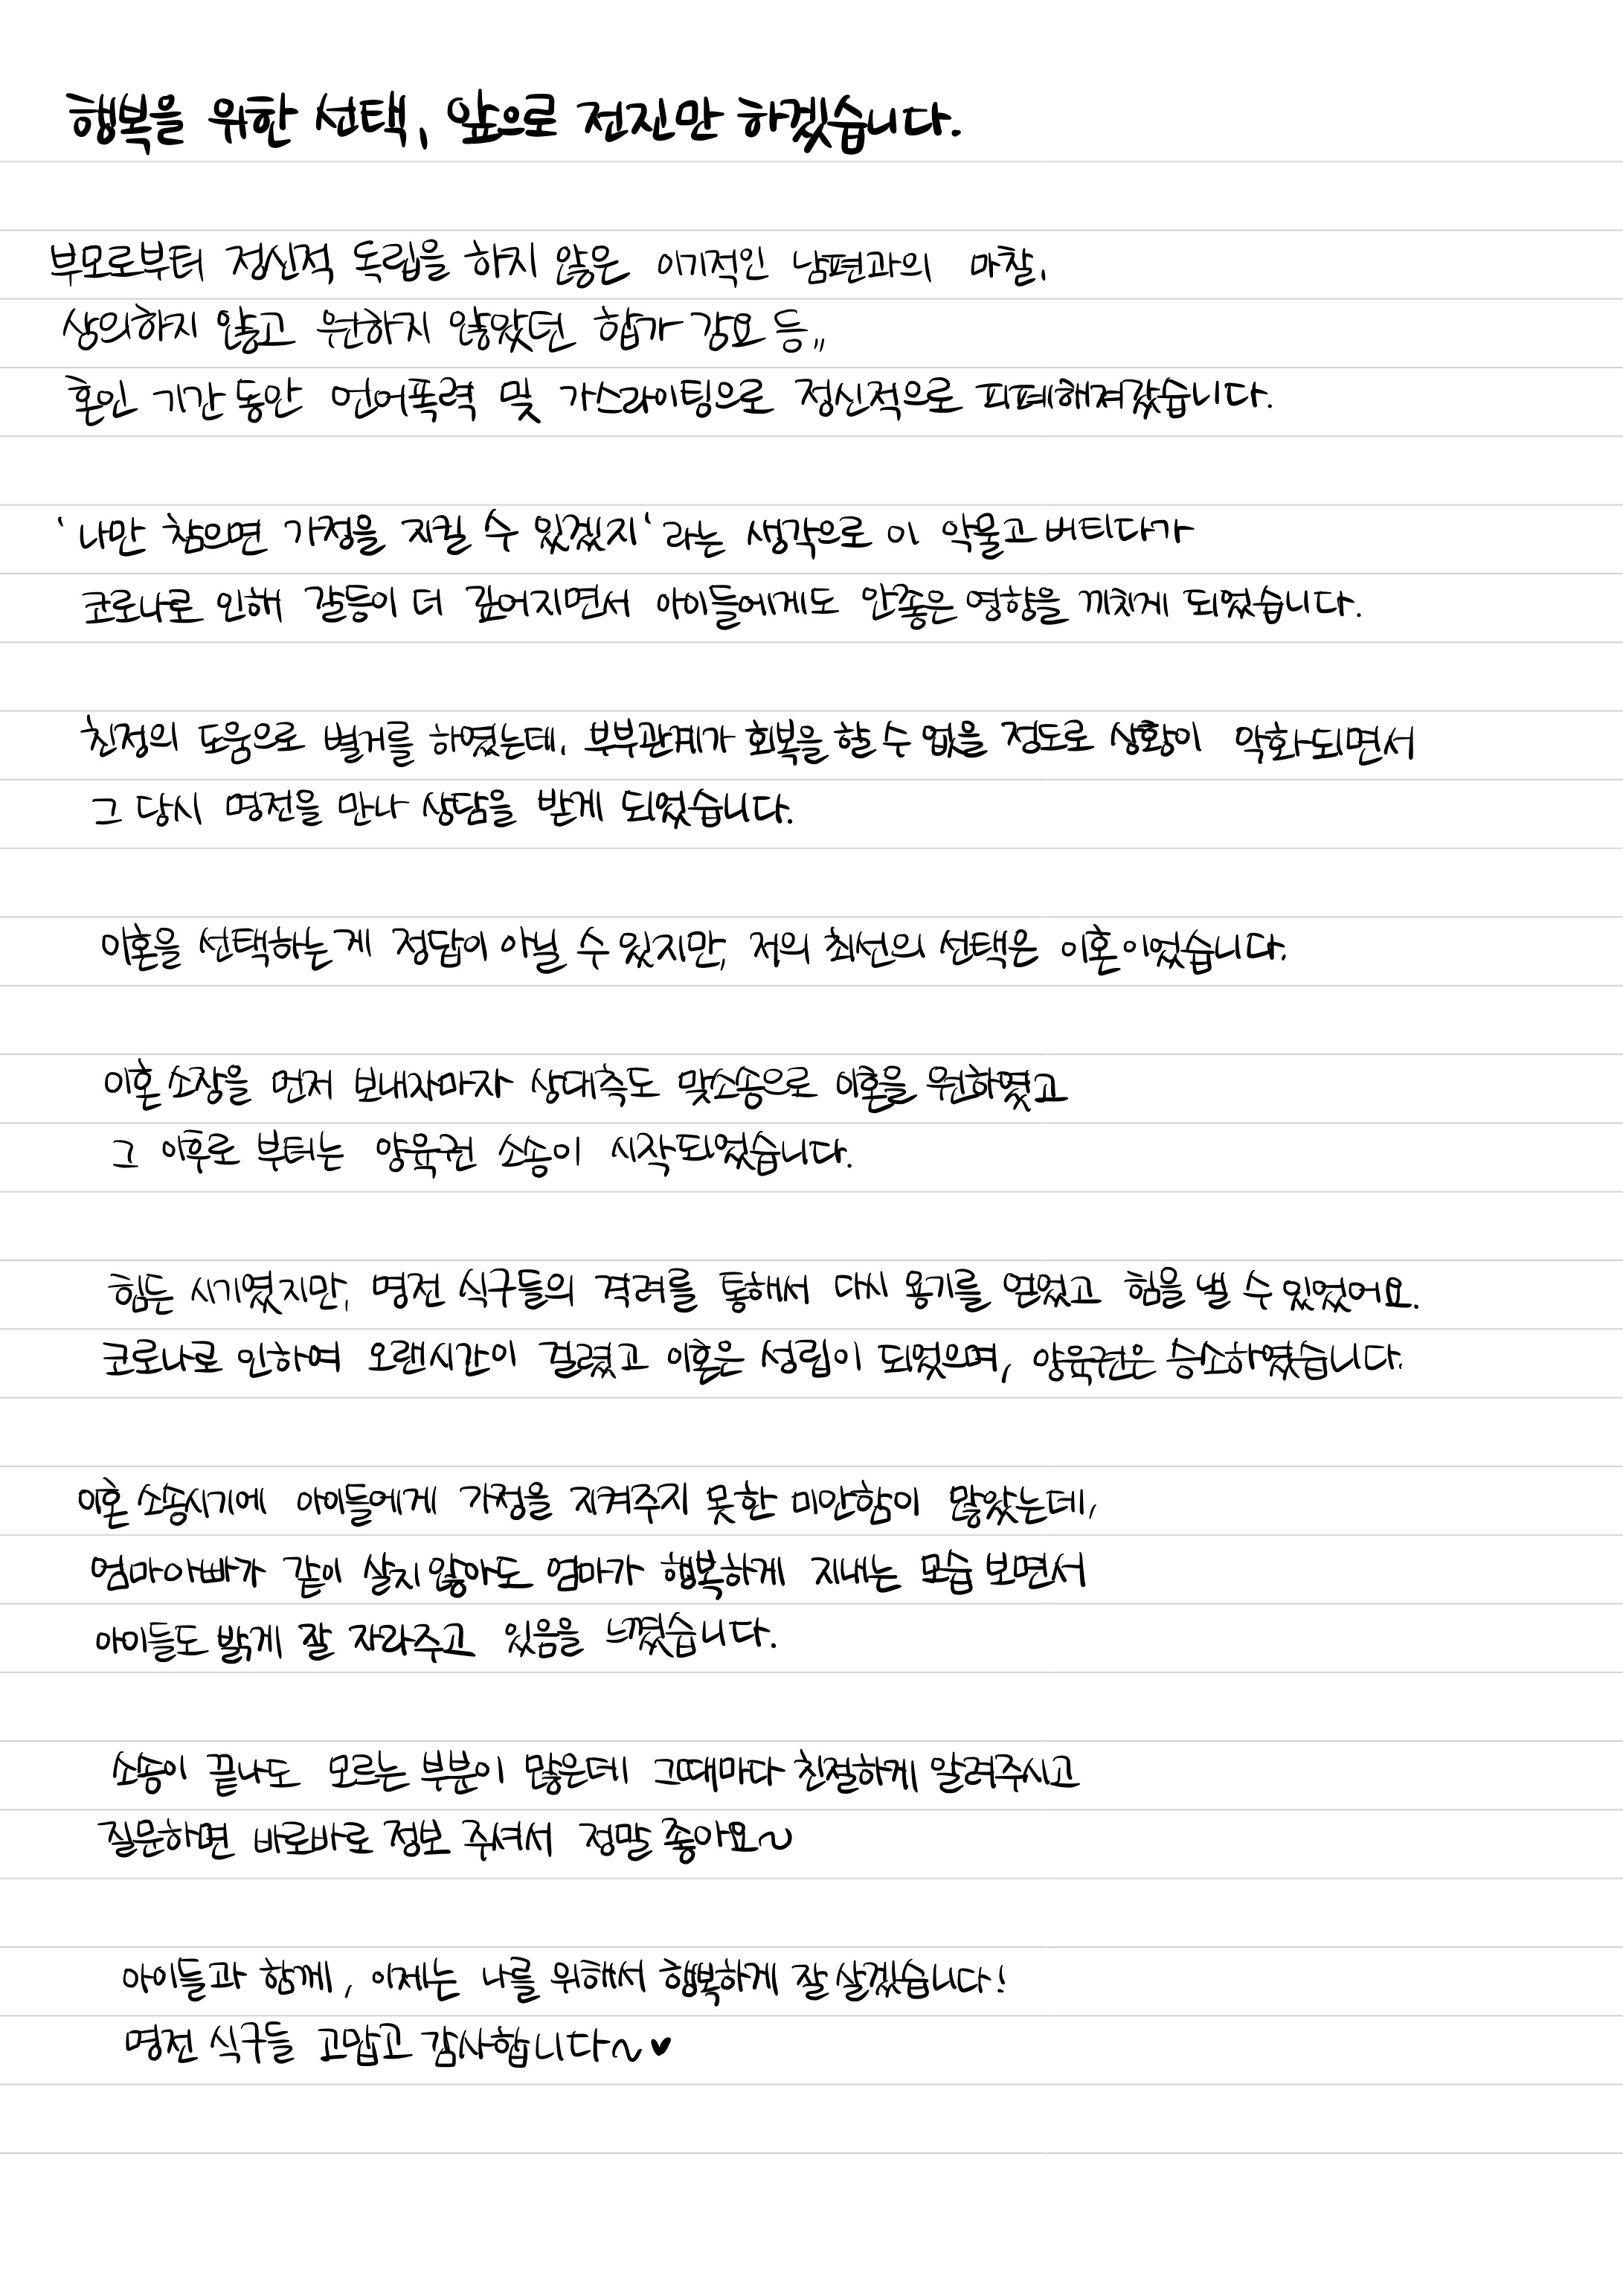 행복을 위한 선택, 앞으로 전진만 하겠습니다.
부모로부터 정신적 독립을 하지 않은 이기적인 남편과의 마찰,
상의하지 않고 원하지 않았던 합가 강요 등,,
혼인 기간 동안 언어폭력 및 가스라이팅으로 정신적으로 피폐해져갔습니다.
'나만 참으면 가정을 지킬 수 있겠지'라는 생각으로 이 악물고 버티다가
코로나로 인해 갈등이 더 깊어지면서 아이들에게도 안좋은 영향을 끼치게 되었습니다.
친정의 도움으로 별거를 하였는데, 부부관계가 회복을 할 수 없을 정도로 상황이 악화되면서
그 당시 명전을 만나 상담을 받게 되었습니다.
이혼을 선택하는게 정답이 아닐 수 있지만, 저의 최선의 선택은 이혼이었습니다.
이혼 소장을 먼저 보내자마자 상대측도 맞소송으로 이혼을 원하였고
그 이후로 부터는 양육권 소송이 시작되었습니다.
힘든 시기였지만, 명전 식구들의 격려를 통해서 다시 용기를 얻었고 힘을 낼 수 있었어요.
코로나로 인하여 오랜시간이 걸렸고 이혼은 성립이 되었으며, 양육권은 승소하였습니다.
이혼 소송시기에 아이들에게 가정을 지켜주지 못한 미안함이 많았는데,
엄마아빠가 같이 살지 않아도 엄마가 행복하게 지내는 모습 보면서
아이들도 밝게 잘 자라주고 있음을 느꼈습니다.
소송이 끝나도 모르는 부분이 많은데 그때마다 친절하게 알려주시고
질문하면 바로바로 정보 주셔서 정말 좋아요~
아이들과 함께, 이제는 나를 위해서 행복하게 잘 살겠습니다!
명전 식구들 고맙고 감사합니다~♥